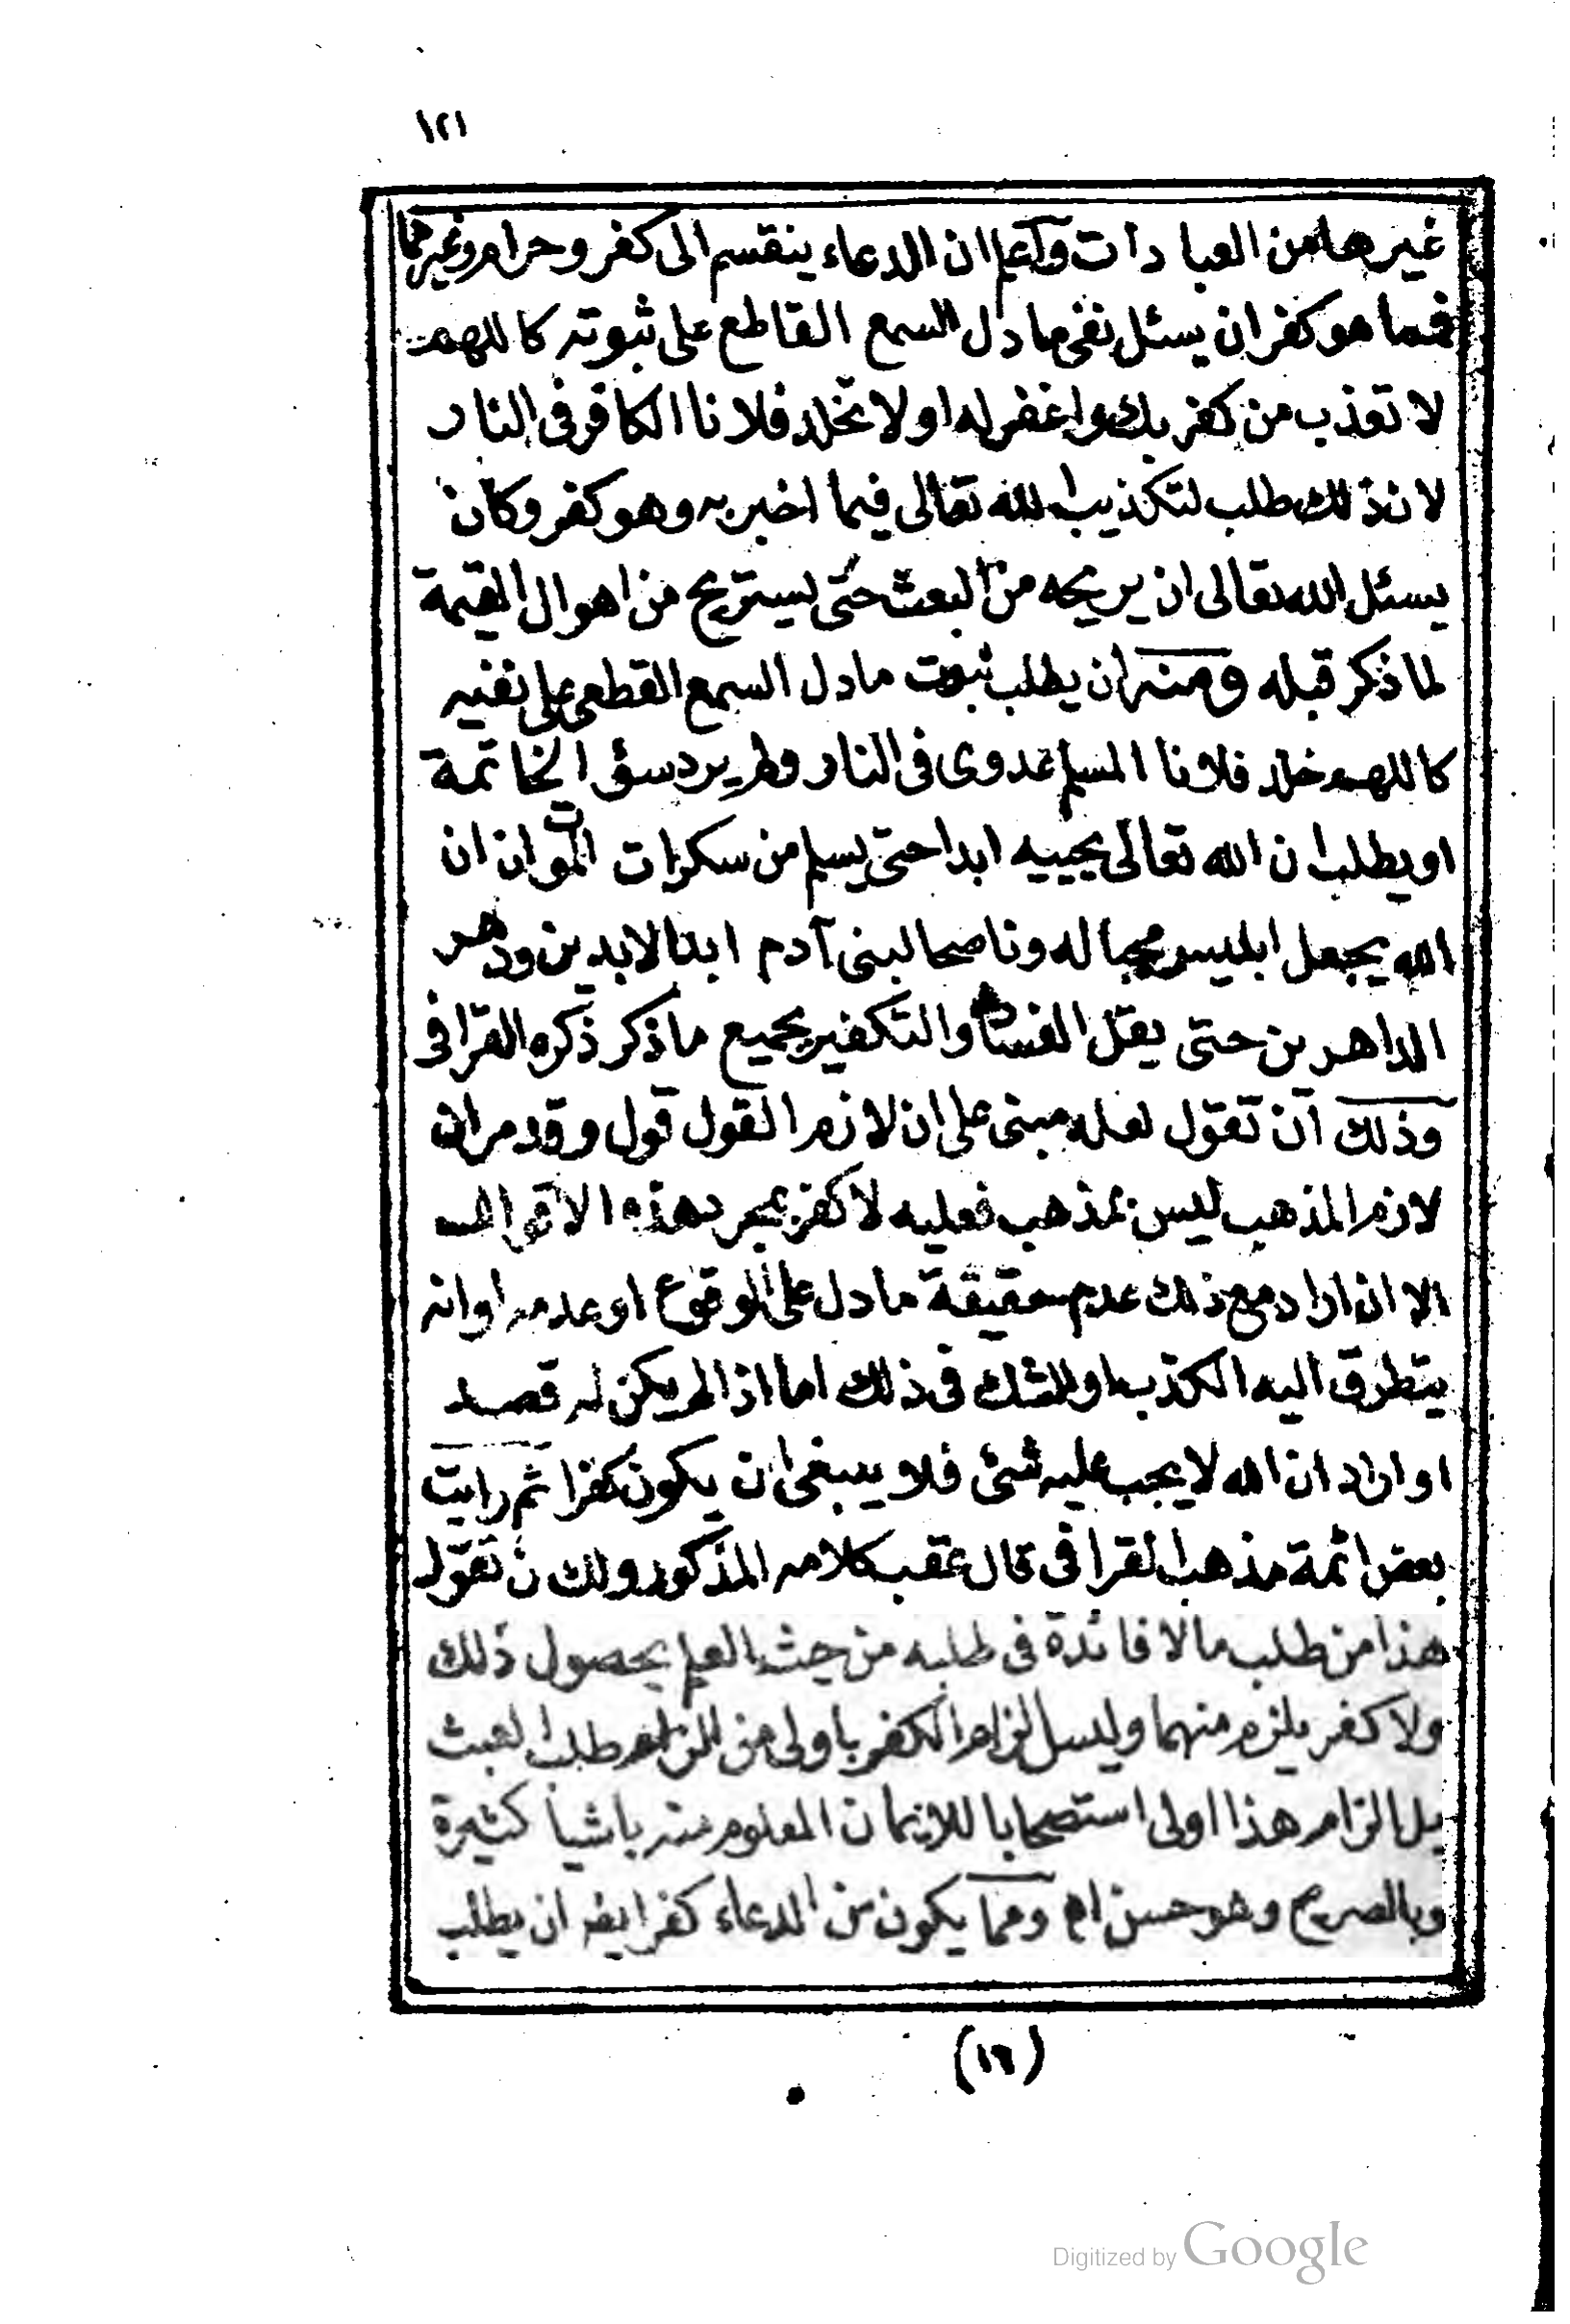 ١٢١
غيرها من العبادات واعلم ان الدعاء ينقسم الى كفر وحرام وغيرهما
فمما هو كفر ان يسئل نفى ما دل السمع القاطع على ثبوته كاللهم
لا تعذب من كفر بك واغفر له او لا تخلد فلانا الكافر فى النار
لان ذلك طلب لتكذيب الله تعالى فيما اخبر به وهو كفر وكان
يسئل الله تعالى ان يريحه من البعث حتى يستريح من اهوال القيمة
لما ذكر قبله ومنه ان يطلب ثبوت ما دل السمع القطعى على نفيه
كاللهم خلد فلانا المسلم عدوى فى النار ولم يرد سؤ الخاتمة
او يطلب ان الله تعالى يحييه ابدا حتى يسلم من سكرات الموت او ان
الله يجعل ابليس محبا له وناصحا لبنى آدم ابدا الابدين ودهر
الداهرين حتى يقل الفساد والتكفير بجميع ما ذكر ذكره القرافى
وذلك ان تقول لعله مبنى على ان لازم القول قول وقد مر ان
لازم المذهب ليس بمذهب فعليه لا كفر بمجرد هذه الاقوال
الا ان اراد مع ذلك عدم حقيقة ما دل على الوقوع او عدمه او انه
يتطرق اليه الكذب او الشك فى ذلك اما اذا لم يكن له قصد
او اراد ان الله لا يجب عليه شئ فلا ينبغى ان يكون كفرا ثم رايت
بعض ائمة مذهب القرافى قال عقب كلامه المذكور ولك ن تقول
هذا من طلب ما لا فائدة فى طلبه من حيث العلم بحصول ذلك
ولا كفر يلزم منهما وليس الزام الكفر باولى من الزام طلب العبث
بل الزام هذا اولى استصحابا للايمان المعلوم منه باشيا كثيرة
وبالصريح وهو حسن اه ومما يكون من الدعاء كفرا ايضا ان يطلب
(١٦)
Digitized by Google